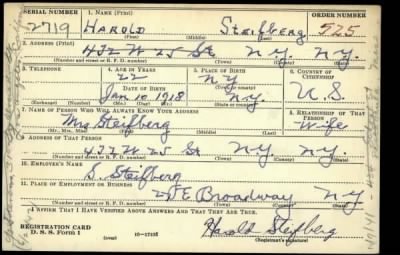 SERIAL NUMBER 1. NAME (Print) ORDER NUMBER
2719 HAROLD Steifberg 525
(First) (Middle) (Last)
2. ADDRESS (Print)
432 W 25 St N.Y. N.Y.
(Number and street or R. F. D. number) (Town) (County) (State)
3. TELEPHONE 4. AGE IN YEARS 5. PLACE OF BIRTH 6. COUNTRY OF CITIZENSHIP
22 N.Y.
DATE OF BIRTH (Town or county)
Jan 10 1918 N.Y. U.S
(Exchange) (Number) (Mo.) (Day) (Yr.) (State or country)
7. NAME OF PERSON WHO WILL ALWAYS KNOW YOUR ADDRESS 8. RELATIONSHIP OF THAT PERSON
Mrs Steifberg Wife
(Mr., Mrs., Miss) (First) (Middle) (Last)
9. ADDRESS OF THAT PERSON
432 W 25 St N.Y. N.Y.
(Number and street or R. F. D. number) (Town) (County) (State)
10. EMPLOYER'S NAME
S. Steifberg
11. PLACE OF EMPLOYMENT OR BUSINESS
E Broadway NY
(Number and street or R. F. D. number) (Town) (County) (State)
I AFFIRM THAT I HAVE VERIFIED ABOVE ANSWERS AND THAT THEY ARE TRUE.
REGISTRATION CARD
D. S. S. Form 1 (over) 16-17125 Harold Steifberg
(Registrant's signature)